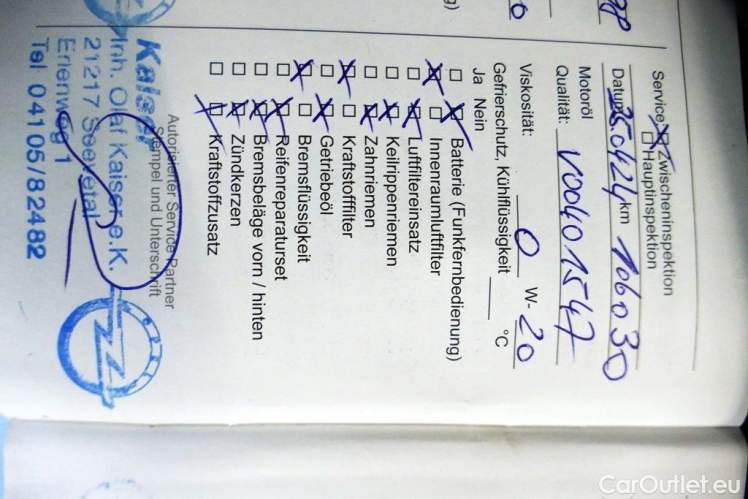 Service: Zwischeninspektion
Hauptinspektion
Datum 25.04.24 km 106030
Motoröl
Qualität: V00401547
Viskosität: 0 W- 20
Gefrierschutz, Kühlflüssigkeit °C
Ja Nein
Batterie (Funkfernbedienung)
Innenraumluftfilter
Luftfiltereinsatz
Keilrippenriemen
Zahnriemen
Kraftstofffilter
Getriebeöl
Bremsflüssigkeit
Reifenreparaturset
Bremsbeläge vorn / hinten
Zündkerzen
Kraftstoffzusatz
Autorisierter Service Partner
Stempel und Unterschrift
Kaiser
Inh. Olaf Kaiser e.K.
21217 Seevetal
Erlenweg 1
Tel 04105/82482
OPEL
CarOutlet.eu